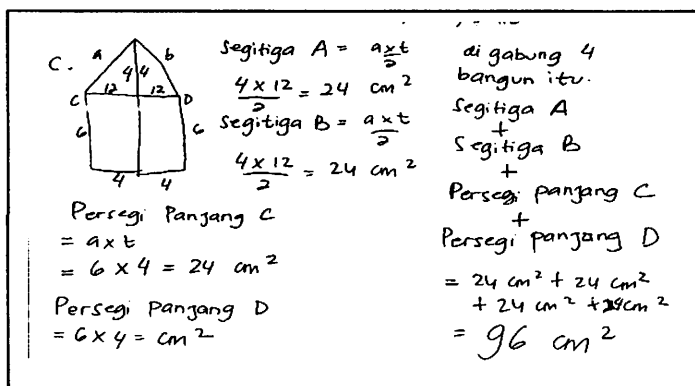 C.
a b
4 4
12 12
C D
6 6
4 4
Segitiga A = a x t / 2
4 x 12 / 2 = 24 cm²
Segitiga B = a x t / 2
4 x 12 / 2 = 24 cm²
Persegi Panjang C
= a x t
= 6 x 4 = 24 cm²
Persegi Panjang D
= 6 x 4 = cm²
di gabung 4
bangun itu.
Segitiga A
+
Segitiga B
+
Persegi panjang C
+
Persegi panjang D
= 24 cm² + 24 cm²
+ 24 cm² + 24 cm²
= 96 cm²